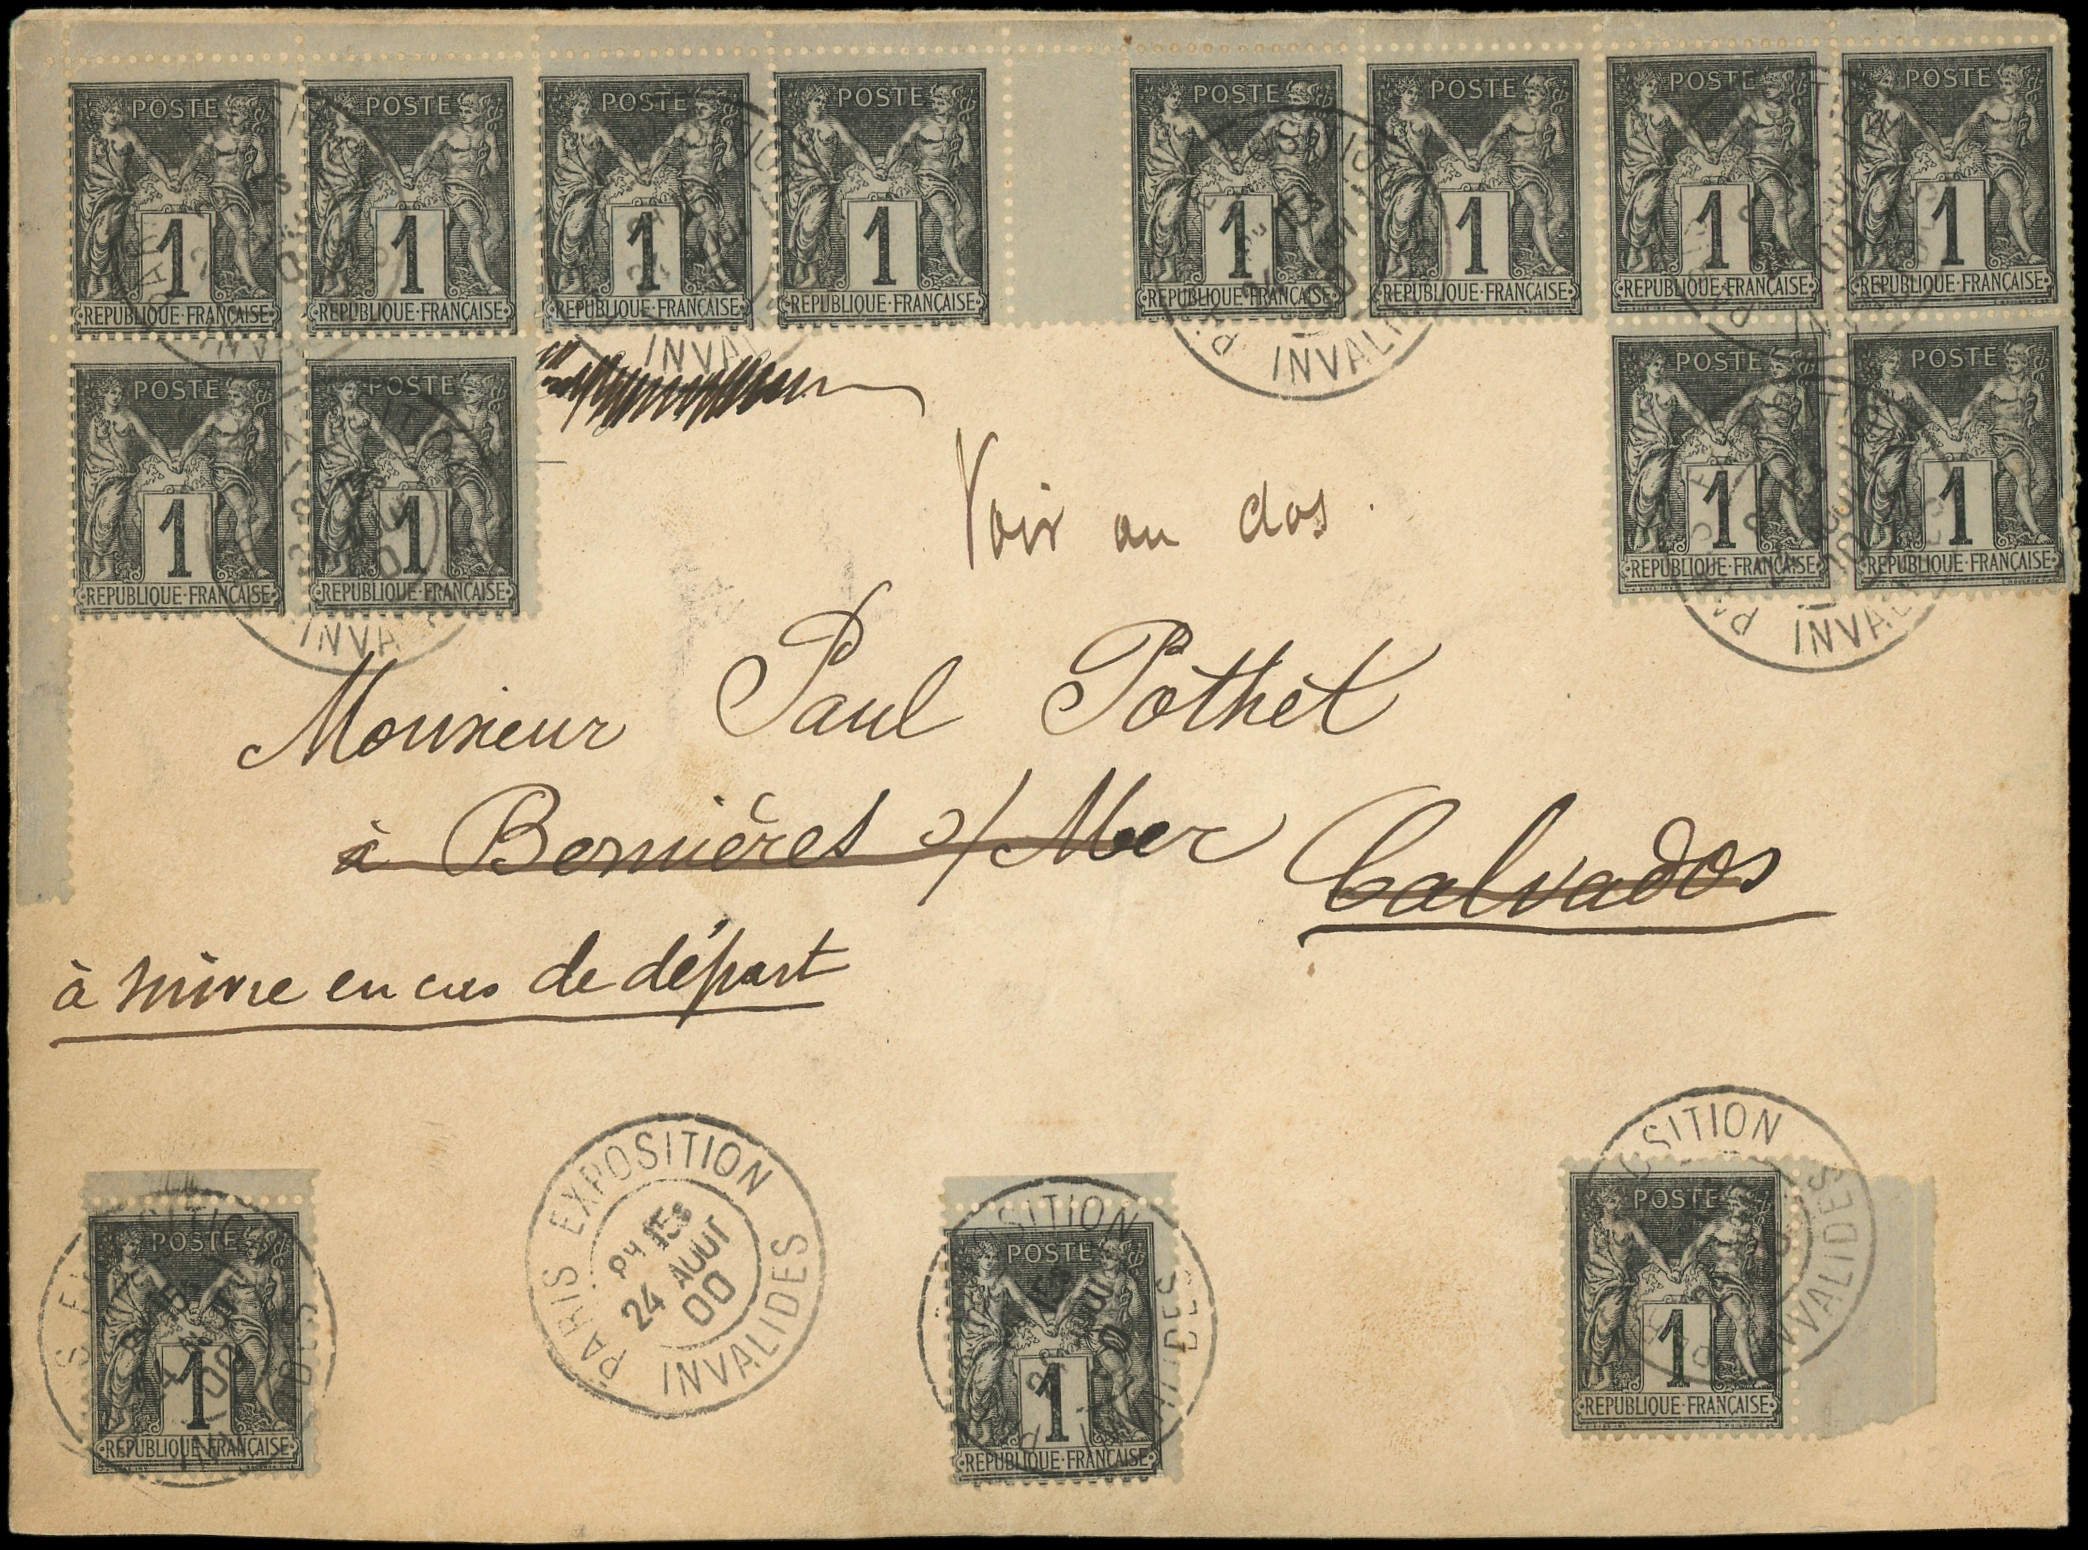 POSTE POSTE POSTE POSTE POSTE POSTE POSTE POSTE
1 1 1 1 1 1 1 1
REPUBLIQUE·FRANÇAISE REPUBLIQUE·FRANÇAISE REPUBLIQUE·FRANÇAISE REPUBLIQUE·FRANÇAISE REPUBLIQUE·FRANÇAISE REPUBLIQUE·FRANÇAISE REPUBLIQUE·FRANÇAISE REPUBLIQUE·FRANÇAISE
POSTE POSTE POSTE POSTE
1 1 1 1
REPUBLIQUE·FRANÇAISE REPUBLIQUE·FRANÇAISE REPUBLIQUE·FRANÇAISE REPUBLIQUE·FRANÇAISE
Voir au dos.
Monsieur Paul Pothet
à Bernières s/ Mer Calvados
à suivre en cas de départ
PARIS EXPOSITION
24 AOUT
00
INVALIDES
POSTE POSTE POSTE
1 1 1
REPUBLIQUE·FRANÇAISE REPUBLIQUE·FRANÇAISE REPUBLIQUE·FRANÇAISE